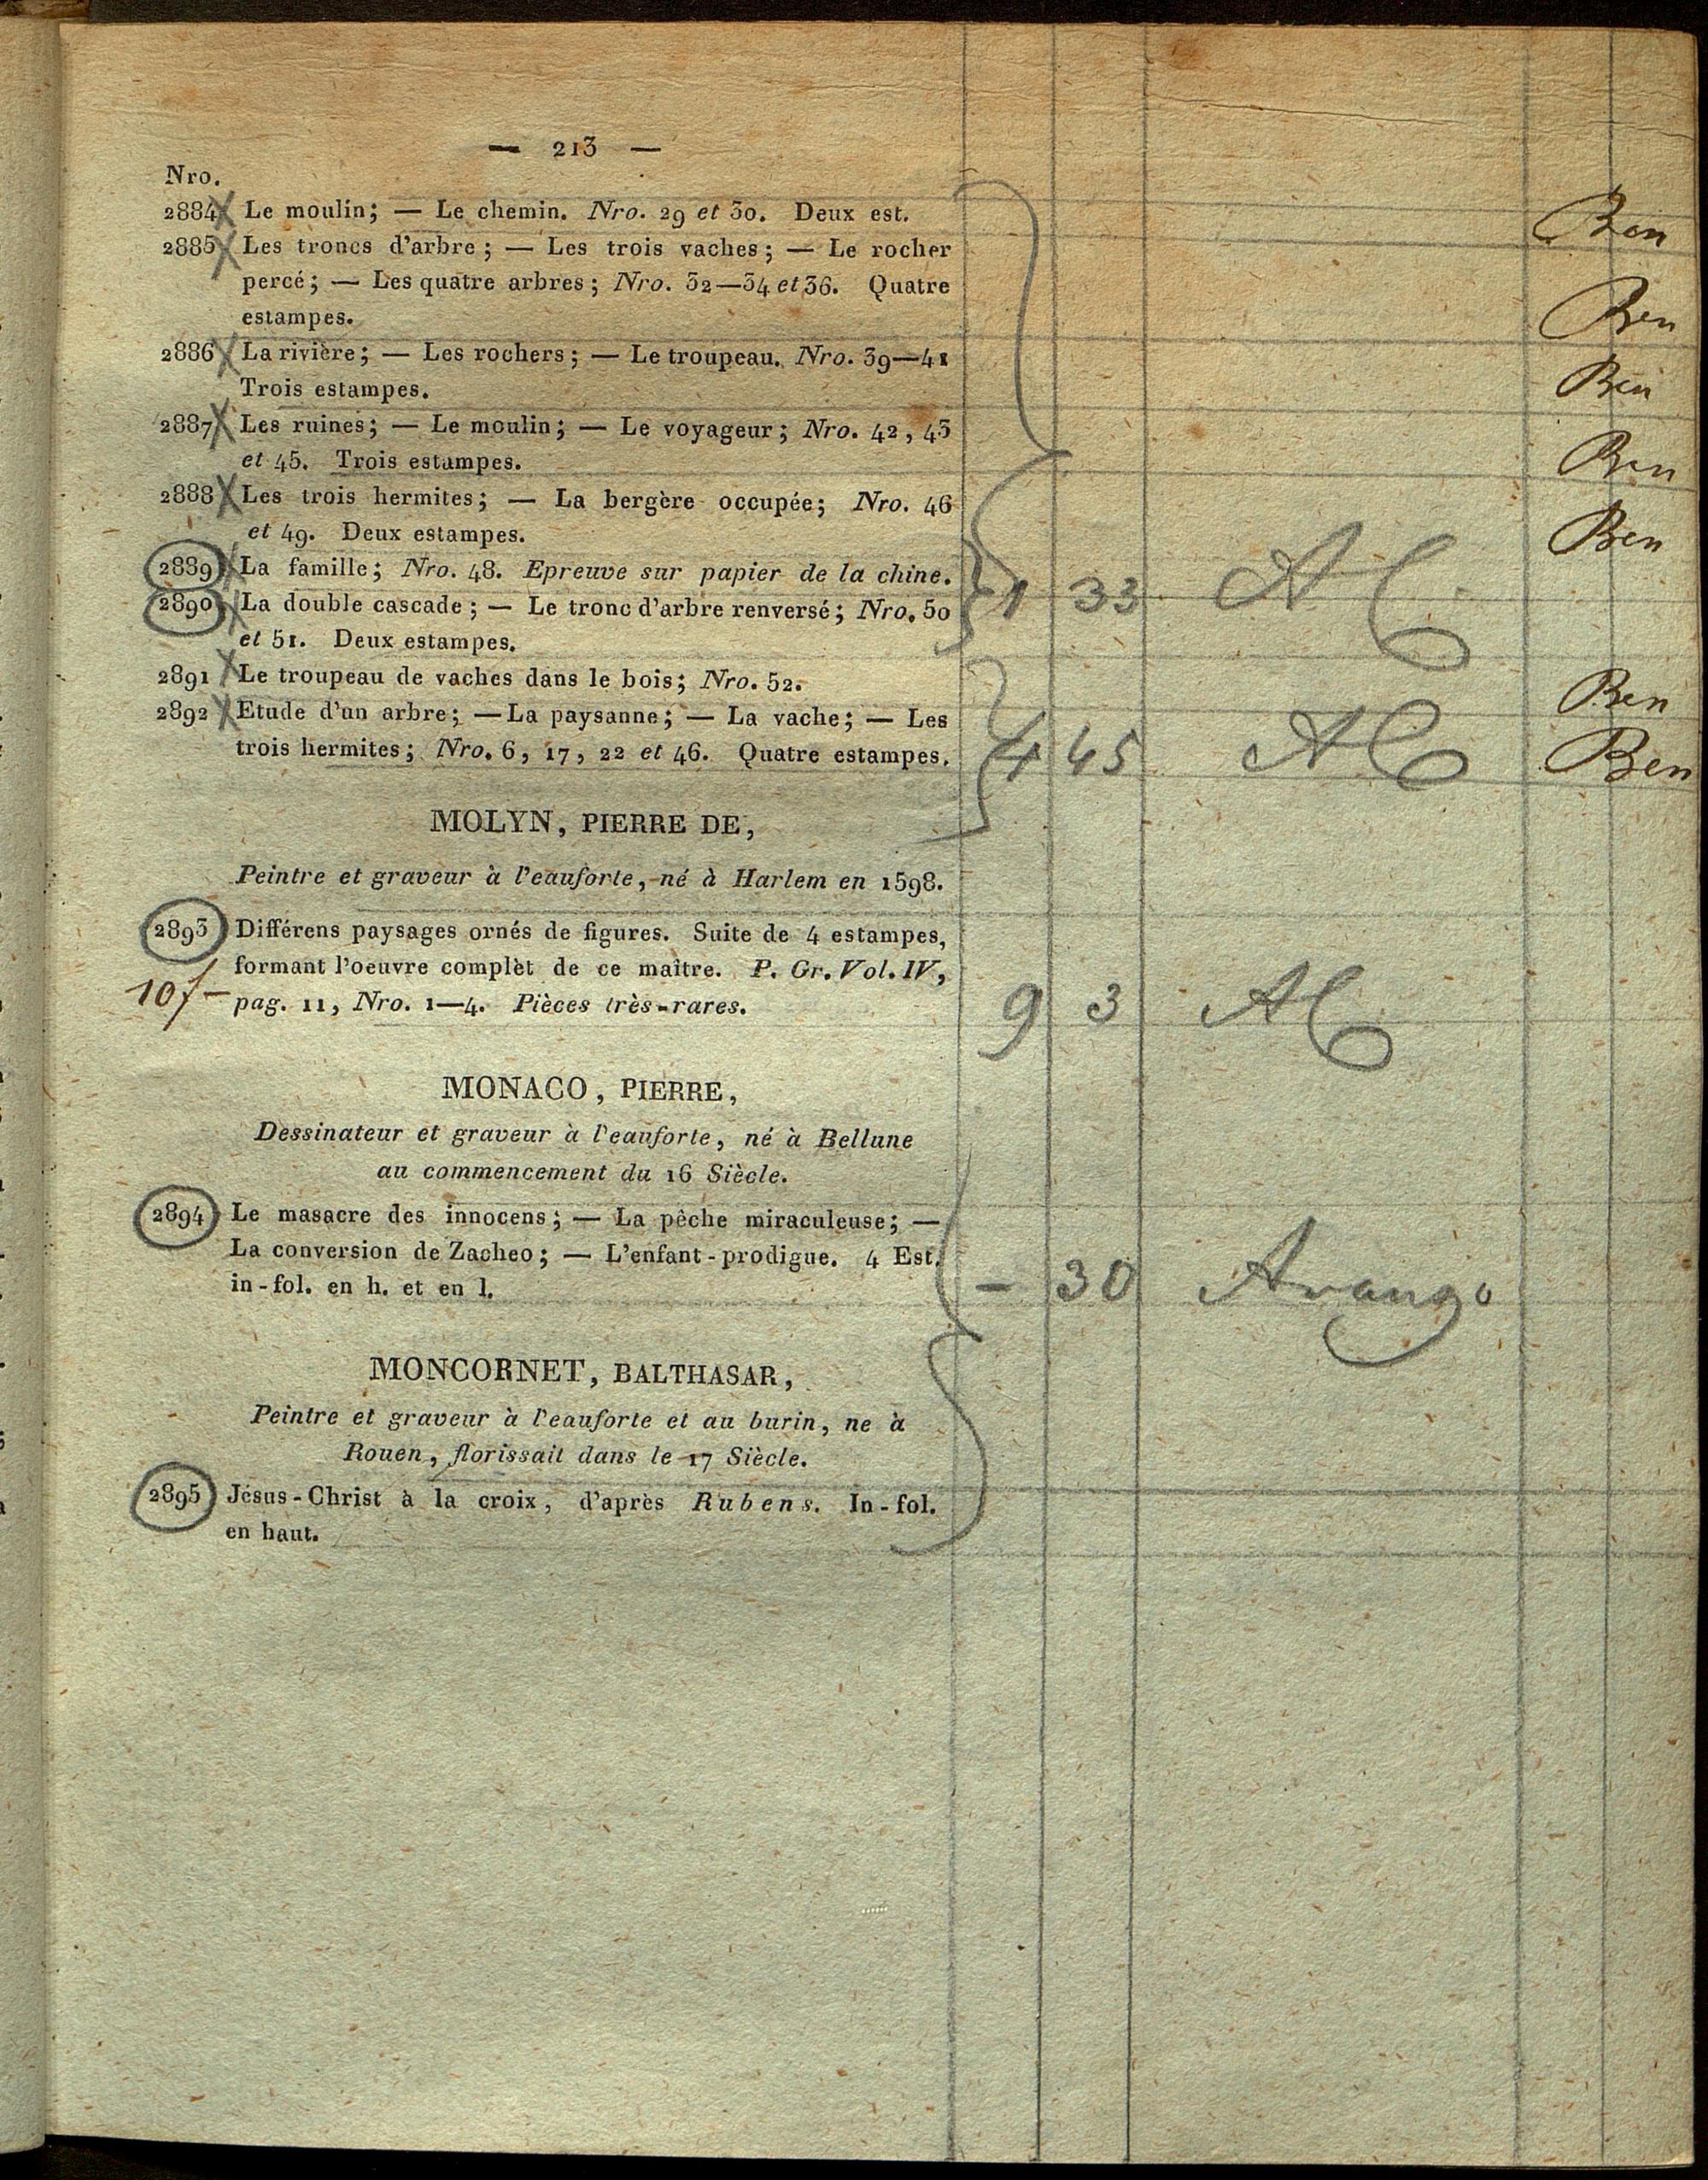 — 213 —
Nro.
2884 Le moulin; — Le chemin. Nro. 29 et 30. Deux est. Ben
2885 Les troncs d'arbre; — Les trois vaches; — Le rocher
percé; — Les quatre arbres; Nro. 32—34 et 36. Quatre Ben
estampes.
2886 La rivière; — Les rochers; — Le troupeau. Nro. 39—41
Trois estampes. Ben
2887 Les ruines; — Le moulin; — Le voyageur; Nro. 42, 43
et 45. Trois estampes. Ben
2888 Les trois hermites; — La bergère occupée; Nro. 46
et 49. Deux estampes. Ben
2889 La famille; Nro. 48. Epreuve sur papier de la chine.
2890 La double cascade; — Le tronc d'arbre renversé; Nro. 50 1 33 AC
et 51. Deux estampes.
2891 Le troupeau de vaches dans le bois; Nro. 52. Ben
2892 Etude d'un arbre; — La paysanne; — La vache; — Les
trois hermites; Nro. 6, 17, 22 et 46. Quatre estampes. 4 45 AC Ben
MOLYN, PIERRE DE,
Peintre et graveur à l'eauforte, né à Harlem en 1598.
2893 Différens paysages ornés de figures. Suite de 4 estampes,
formant l'oeuvre complèt de ce maître. P. Gr. Vol. IV,
10f— pag. 11, Nro. 1—4. Pièces très-rares. 9 3 AC
MONACO, PIERRE,
Dessinateur et graveur à l'eauforte, né à Bellune
au commencement du 16 Siècle.
2894 Le masacre des innocens; — La pêche miraculeuse; —
La conversion de Zacheo; — L'enfant-prodigue. 4 Est.
in-fol. en h. et en l. — 30 Arango
MONCORNET, BALTHASAR,
Peintre et graveur à l'eauforte et au burin, ne à
Rouen, florissait dans le 17 Siècle.
2895 Jésus-Christ à la croix, d'après Rubens. In-fol.
en haut.